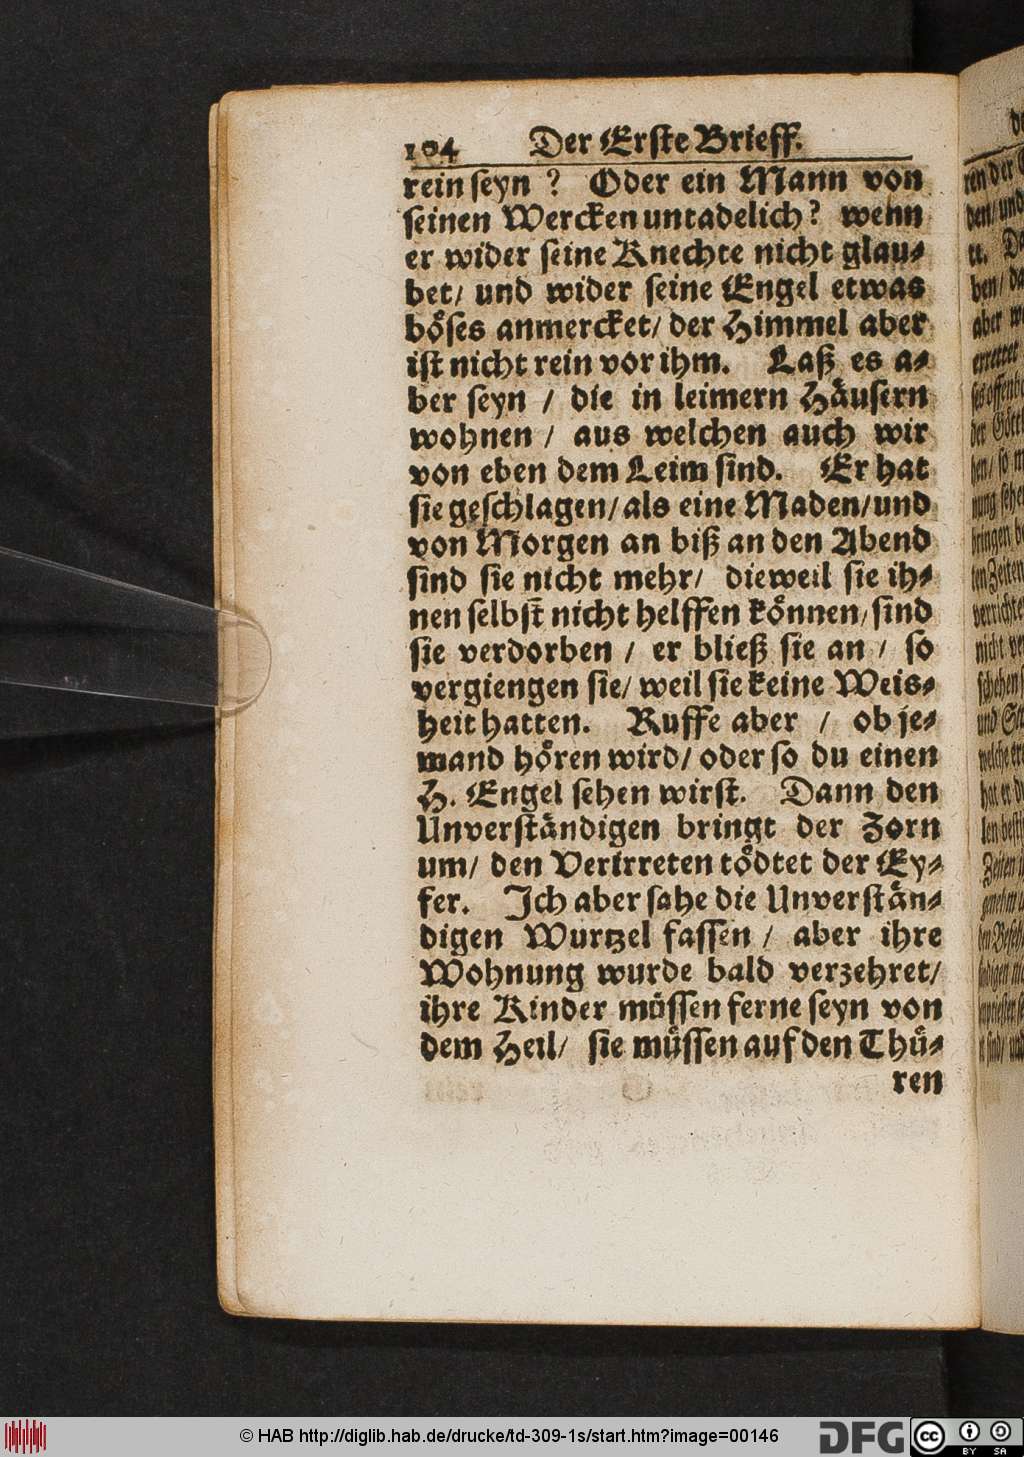 104 Der Erste Brieff.
rein seyn ? Oder ein Mann von
seinen Wercken untadelich? wenn
er wider seine Knechte nicht glau-
bet/ und wider seine Engel etwas
böses anmercket/ der Himmel aber
ist nicht rein vor ihm. Laß es a-
ber seyn / die in leimern Häusern
wohnen / aus welchen auch wir
von eben dem Leim sind. Er hat
sie geschlagen/ als eine Maden/ und
von Morgen an biß an den Abend
sind sie nicht mehr/ dieweil sie ih-
nen selbst nicht helffen können/ sind
sie verdorben / er bließ sie an / so
vergiengen sie/ weil sie keine Weis-
heit hatten. Ruffe aber / ob je-
mand hören wird/ oder so du einen
H. Engel sehen wirst. Dann den
Unverständigen bringt der Zorn
um/ den Verirreten tödtet der Ey-
fer. Ich aber sahe die Unverstän-
digen Wurtzel fassen / aber ihre
Wohnung wurde bald verzehret/
ihre Kinder müssen ferne seyn von
dem Heil/ sie müssen auf den Thü-
ren
© HAB http://diglib.hab.de/drucke/td-309-1s/start.htm?image=00146
DFG
cc BY SA